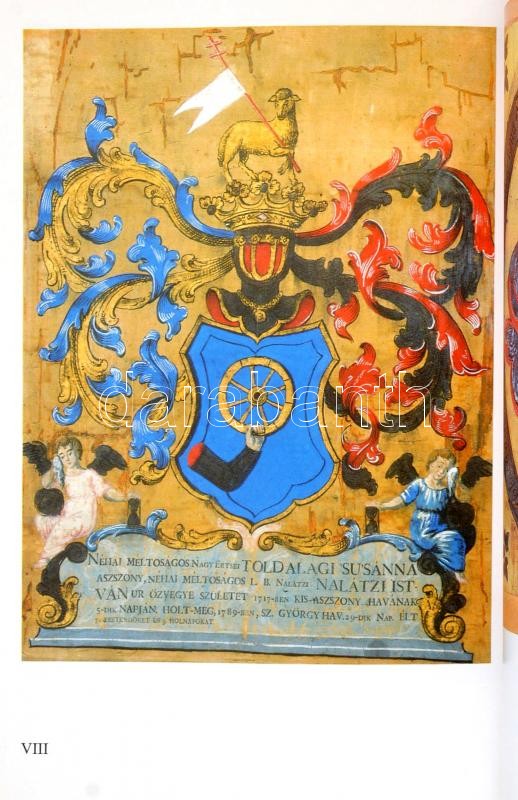 darabanth
NÉHAI MELTOSAGOS NAGY ERTSEI TOLDALAGI SUSANNA
ASZSZONY, NÉHAI MÉLTOSAGOS L. B. NALÁTZI NALÁTZI IST-
VÁN UR ÖZVEGYE SZÜLETET 1717-BEN KIS-ASZSZONY HAVÁNAK
5-DIK NAPJÁN, HOLT-MEG, 1789-BEN, SZ. GYÖRGY HAV. 29-DIK NAP. ÉLT
ESZTENDŐKET ÉS HOLNAPOKAT
VIII